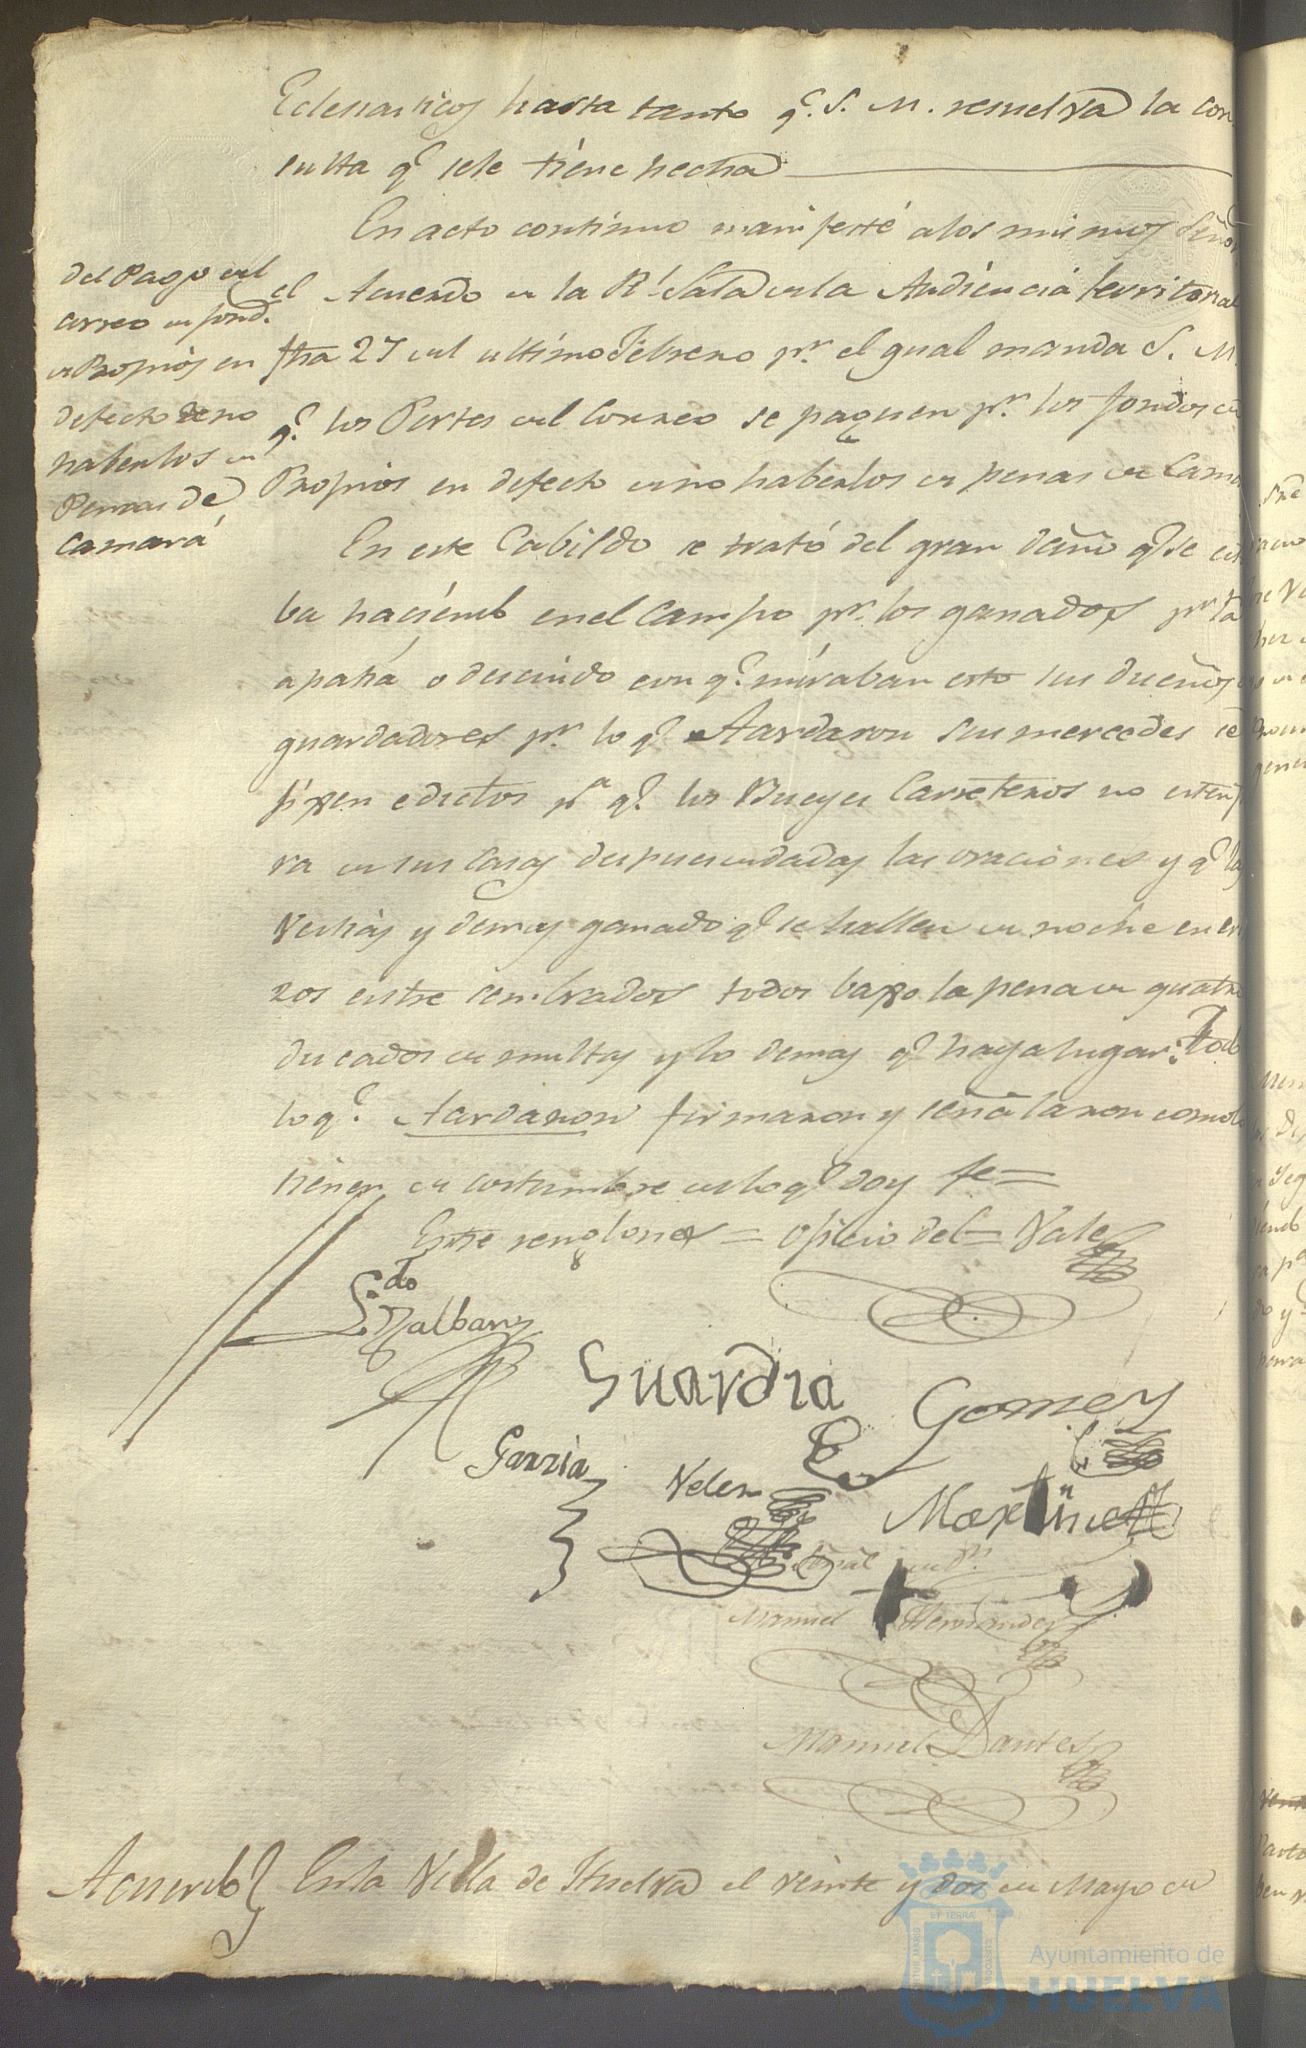 Eclesiasticos hasta tanto q.e S. M. resuelva la con
sulta q.e sele tiene hecha
En acto continuo manifesté alos mismos Señor
el Acuerdo de la R.l Sala dela Audiéncia territorial
fha 27 del ultimo Febrero p.r el qual manda S. M.
q.e los Portes del Correo se paguen p.r los fondos de
Propios en defecto deno haberlos de penas de Cama
del Pago del
correo de fond.
de Propios en
defecto de no
haberlos de
Penas de
Camará
En este Cabildo se trató del gran daño q.e se est
ba haciendo enel Campo p.r los ganados p.r la
apatia o descuido con q.e miraban esto sus dueños
guardadores p.r lo q.e Acordaron sus mercedes se
fixen edictos p.a q.e los Bueyes Carreteros no esten f
ra de sus Casas despues dadas las oraciones y q.e las
Vestias y demas ganado q.e se hallen de noche en er
zos entre sembrados todos baxo la pena de quatro
ducados de multas y lo demas q.e haya lugar: Todo
lo q.e Acordaron firmaron y señalaron como
tienen de costumbre delo q.e doy fe =
Entre renglones = Oficio del = Vale
L.do
Malbany
Guardia
Gomez
Garzia
Velez
Martinez
Señal de
Manuel Hernandez
Manuel Dantes
Acuerdo En la Villa de Huelva el veinte y dos de Mayo de
ET TERRA
Ayuntamiento de
HUELVA